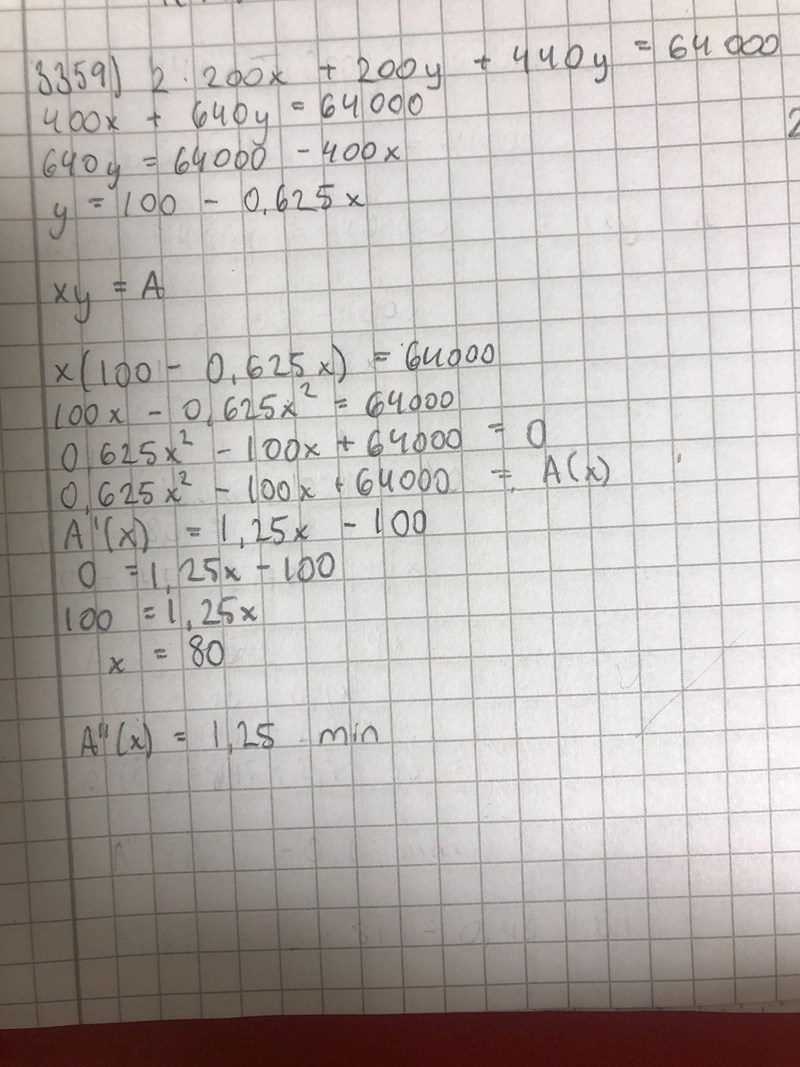 3359) 2 · 200x + 200y + 440y = 64 000
400x + 640y = 64000
640y = 64000 - 400x
y = 100 - 0,625x
xy = A
x(100 - 0,625x) = 64000
100x - 0,625x² = 64000
0,625x² - 100x + 64000 = 0
0,625x² - 100x + 64000 = A(x)
A'(x) = 1,25x - 100
0 = 1,25x - 100
100 = 1,25x
x = 80
A''(x) = 1,25 min